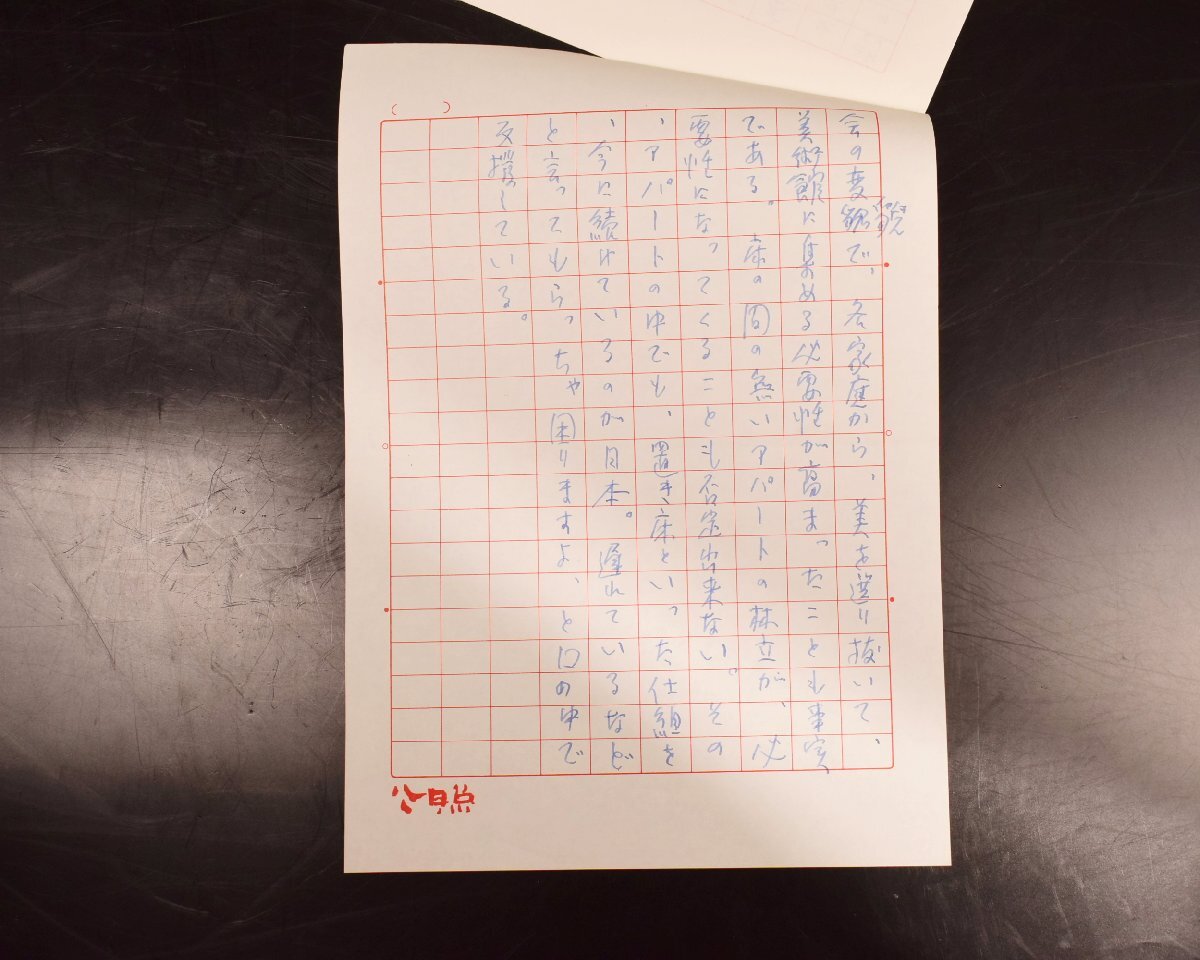 会の変貌で、各家庭から、美を選り抜いて、
美術館に集める必要性が高まったことも事実
である。床の間の無いアパートの林立が、必
要性になってくることも否定出来ない。その
、アパートの中でも、置き床といった仕組を
、今に続けているのが日本。遅れているなど
と言ってもらっちゃ困りますよ、と口の中で
反撥している。